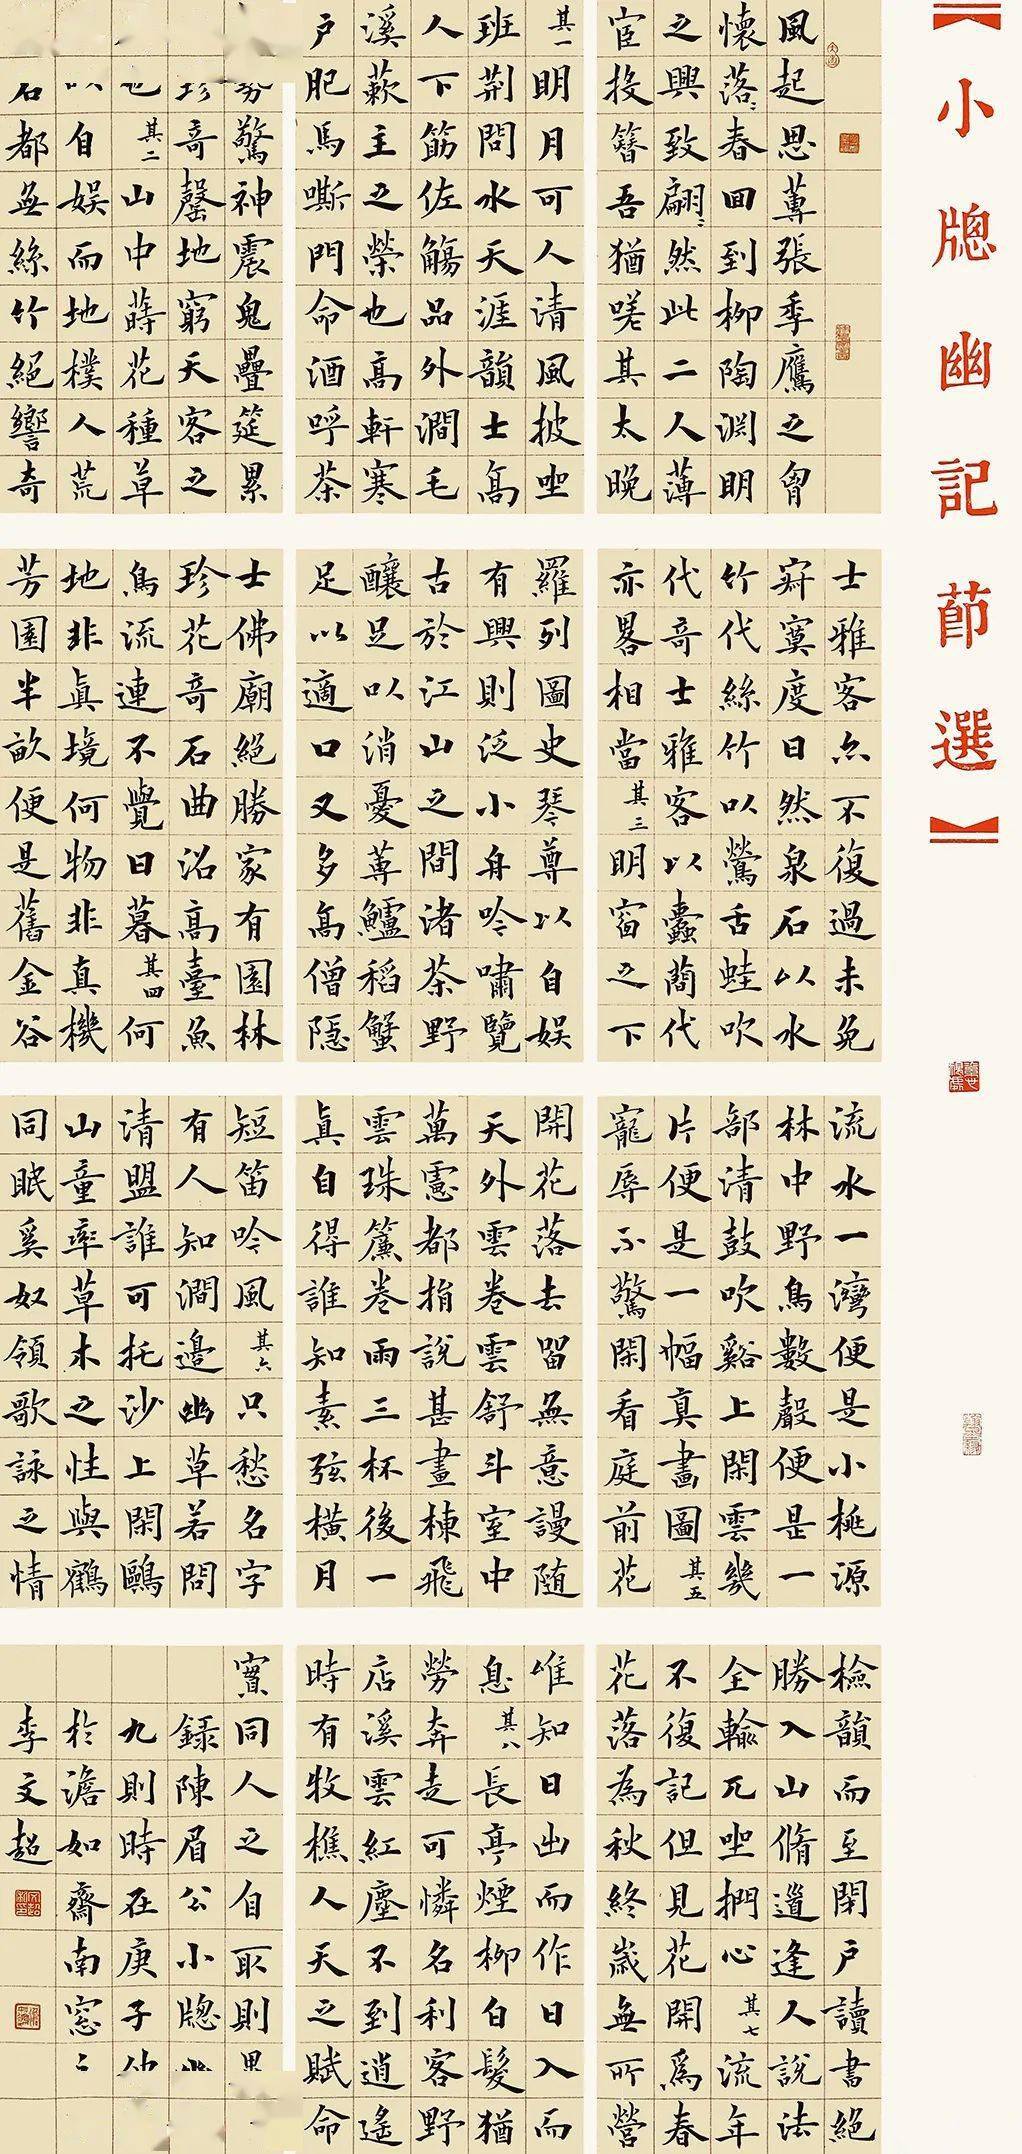 【小牕幽記節選】
風起思蓴張季鷹之曾
懷落々春回到柳陶淵明
之興致翩々然此二人薄
宦投簪吾猶嗟其太晚
其一明月可人清風披坐
班荊問水天涯韻士高
人下筯佐觴品外澗毛
溪蔌主之榮也高軒寒
戶肥馬嘶門命酒呼茶
勞驚神震鬼疊筵累
珍奇罄地窮天客之
也其二山中蒔花種草
以自娛而地樸人荒
石都無絲竹絕響奇
士雅客亦不復過未免
寂寞度日然泉石以水
竹代絲竹以鶯舌蛙吹
代奇士雅客以蠹簡代
亦畧相當其三明窗之下
羅列圖史琴尊以自娛
有興則泛小舟吟嘯覽
古於江山之間渚茶野
釀足以消憂蓴鱸稻蟹
足以適口又多高僧隱
士佛廟絕勝家有園林
珍花奇石曲沼高臺魚
鳥流連不覺日暮其四何
地非真境何物非真機
芳園半畝便是舊金谷
流水一灣便是小桃源
林中野鳥數聲便是一
部清鼓吹谿上閑雲幾
片便是一幅真畫圖其五
寵辱不驚閑看庭前花
開花落去留無意謾隨
天外雲卷雲舒斗室中
萬慮都捐說甚畫棟飛
雲珠簾卷雨三杯後一
真自得誰知素弦橫月
短笛吟風其六只愁名字
有人知澗邊幽草若問
清盟誰可托沙上閑鷗
山童率草木之性與鶴
同眠奚奴領歌詠之情
檢韻而至閉戶讀書絕
勝入山脩道逢人說法
全輸兀坐捫心其七流年
不復記但見花開為春
花落為秋終歲無所營
唯知日出而作日入而
息其八長亭煙柳白髮猶
勞奔走可憐名利客野
店溪雲紅塵不到逍遙
時有牧樵人天之賦命
實同人之自取則異
錄陳眉公小牕幽
九則時在庚子仲
於澹如齋南窓
李文超